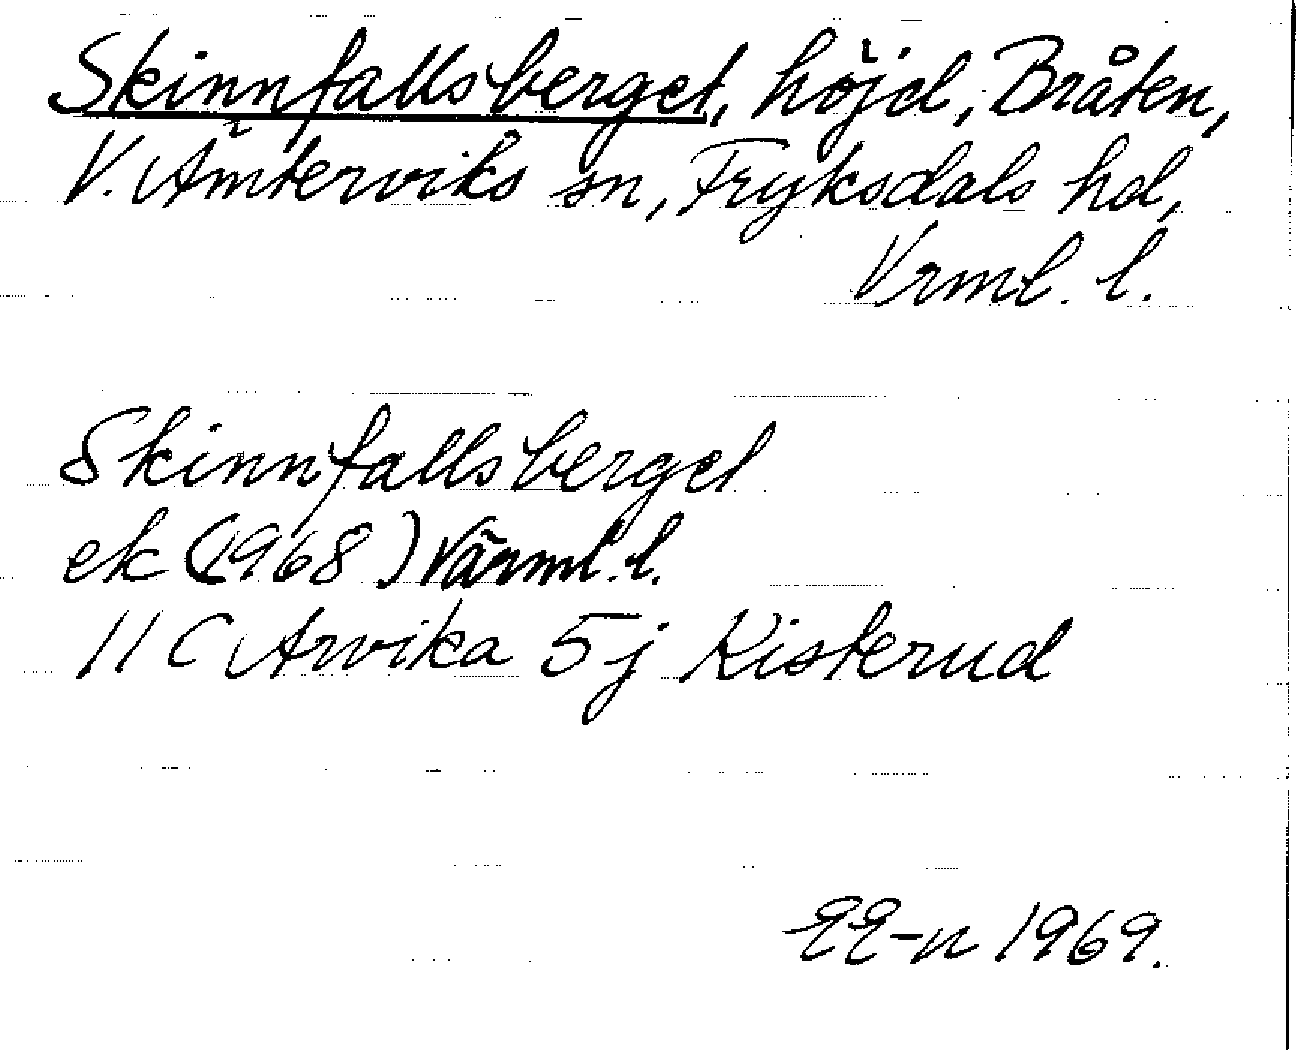 Skinnfallsberget, höjd, Bråten,
V. Ämterviks sn, Fryksdals hd,
Vrml. l.
Skinnfallsberget
ek (1968) Värml. l.
11 C Arvika 5j Kisterud
EE-n 1969.